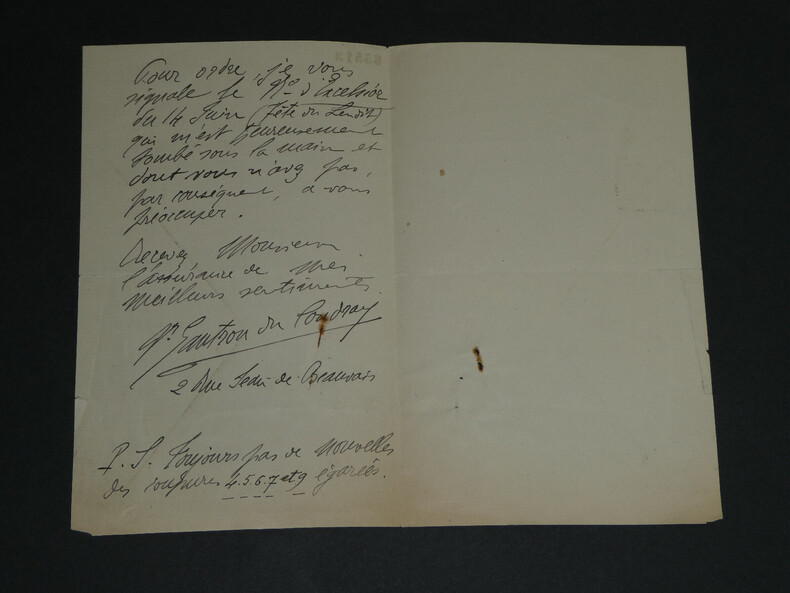 Pour ordre, je vous
signale le N° d'Excelsior
du 14 Juin (fête du Lendit)
qui m'est heureusement
tombé sous la main et
dont vous n'avez pas,
par conséquent, à vous
préoccuper.
Recevez Monsieur
l'assurance de mes
meilleurs sentiments.
Gautron du Coudray
2 Rue Jean-de-Beauvais
P.S. Toujours pas de nouvelles
des coupures 4.5.6.7 et 9 égarées.